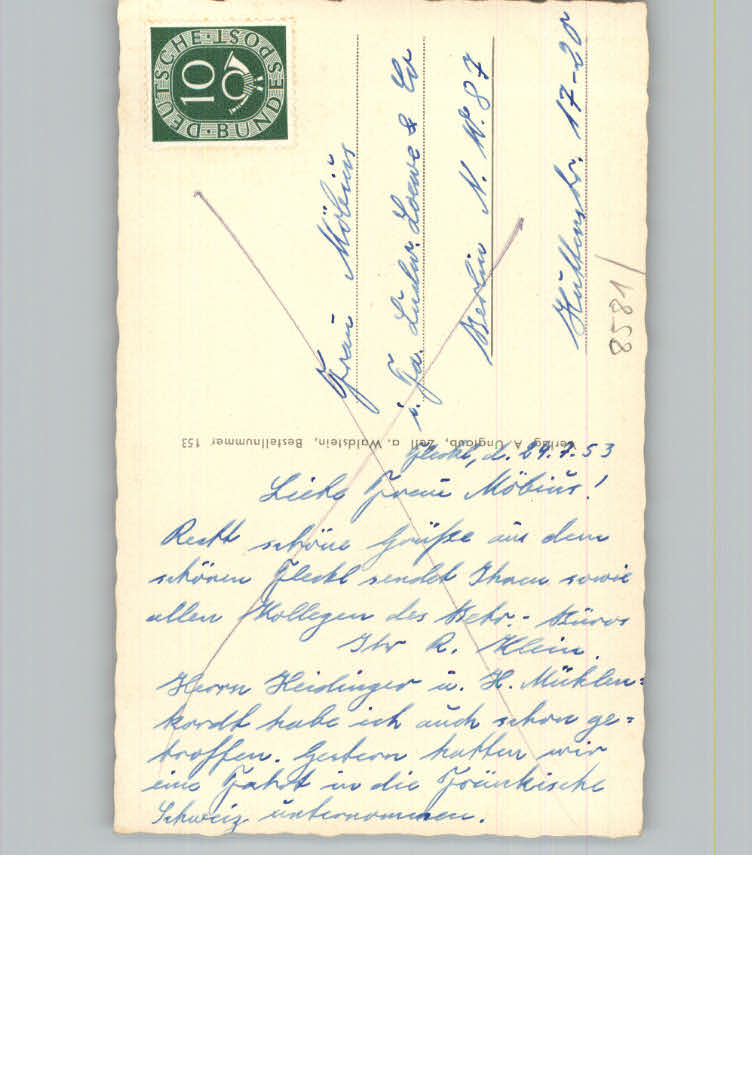 DEUTSCHE BUNDESPOST
10
Frau Möbius
i. Fa. Ludw. Loewe & Co
Berlin N. W. 87
Huttenstr. 17-20
8581/
Verlag A. Unglaub, Zell a. Waldstein, Bestellnummer 153
Fleckl, d. 29.7.53
Liebe Frau Möbius!
Recht schöne Grüße aus dem
schönen Fleckl sendet Ihnen sowie
allen Kollegen des Betr.-Büros
Ihr R. Klein.
Herrn Heidinger u. H. Mühlen=
kordt habe ich auch schon ge=
troffen. Gestern hatten wir
eine Fahrt in die Fränkische
Schweiz unternommen.